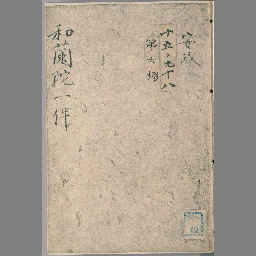 安政
十五ノ九十八
第六棚
和蘭院一件